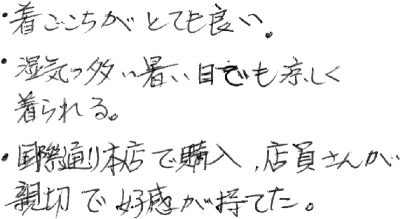 ・着ごこちがとても良い。
・湿気の多い暑い日でも涼しく
着られる。
・国際通り本店で購入、店員さんが
親切で好感が持てた。